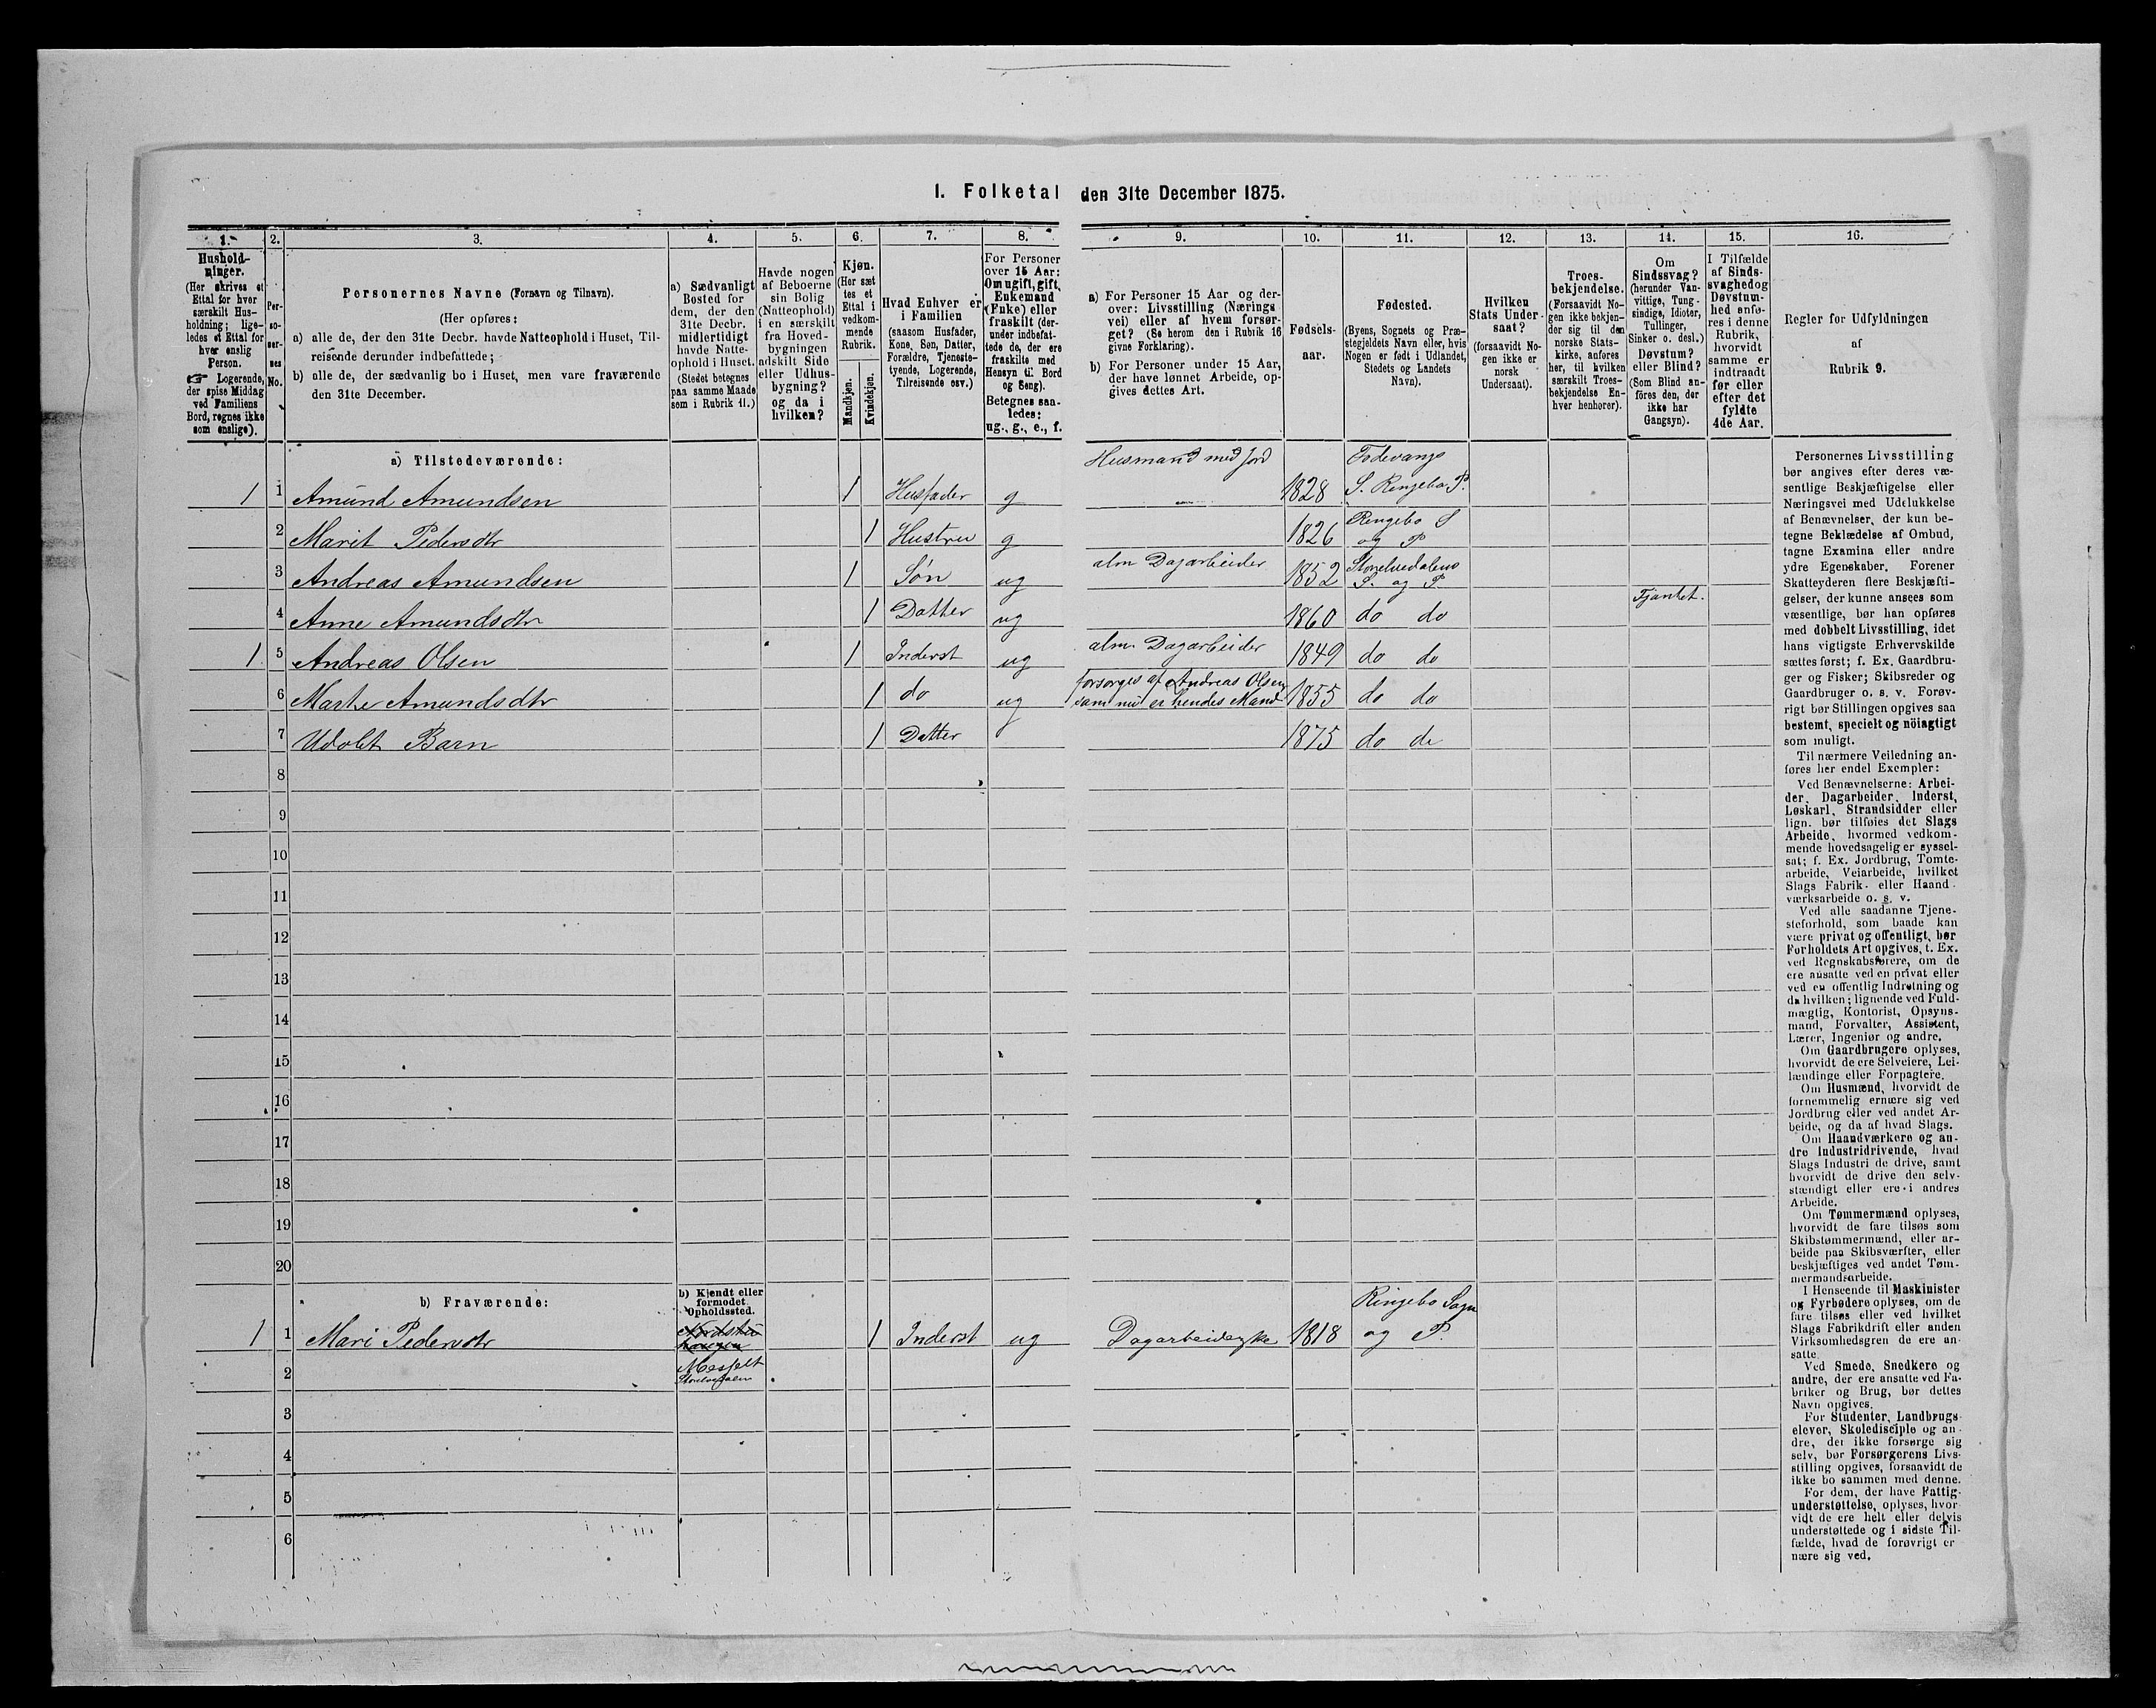 I. Folketal den 31te December 1875.
1.
2.
3.
4.
5.
6.
7.
8.
9.
10.
11.
12.
13.
14.
15.
16.
Hushold-
ninger.
(Her skrives et
Ettal for hver
særskilt Hus-
holdning; lige-
ledes et Ettal for
hver enslig
Person.
☞ Logerende,
der spise Middag
ved Familiens
Bord, regnes ikke
som enslige).
Per-
so-
ner-
nes
No.
Personernes Navne (Fornavn og Tilnavn).
(Her opføres:
a) alle de, der den 31te Decbr. havde Natteophold i Huset, Til-
reisende derunder indbefattede;
b) alle de, der sædvanlig bo i Huset, men vare fraværende
den 31te December.
a) Sædvanligt
Bosted for
dem, der den
31te Decbr.
midlertidigt
havde Natte-
ophold i Huset.
(Stedet betegnes
paa samme Maade
som i Rubrik 11.)
Havde nogen
af Beboerne
sin Bolig
(Natteophold)
i en særskilt
fra Hoved-
bygningen
adskilt Side
eller Udhus-
bygning?
og da i
hvilken?
Kjøn.
(Her sæt
tes et
Ettal i
vedkom-
mende
Rubrik.
Mandkjøn.
Kvindekjøn.
Hvad Enhver er
i Familien
(saasom Husfader,
Kone, Søn, Datter,
Forældre, Tjeneste-
tyende, Logerende,
Tilreisende osv.)
For Personer
over 15 Aar:
Om ugift, gift,
Enkemand
(Enke) eller
fraskilt (der-
under indbefat-
tede de, der ere
fraskilte med
Hensyn til Bord
og Seng).
Betegnes saa-
ledes:
ug., g., e., f.
a) For Personer 15 Aar og der-
over: Livsstilling (Nærings
vei) eller af hvem forsør-
get? (Se herom den i Rubrik 16
givne Forklaring).
b) For Personer under 15 Aar,
der have lønnet Arbeide, op-
gives dettes Art.
Fødsels-
aar.
Fødested.
(Byens, Sognets og Præ-
stegjeldets Navn eller, hvis
Nogen er født i Udlandet,
Stedets og Landets
Navn).
Hvilken
Stats Under-
saat?
(forsaavidt No-
gen ikke er
norsk
Undersaat).
Troes-
bekjendelse.
(Forsaavidt No-
gen ikke bekjen-
der sig til den
norske Stats-
kirke, anføres
her, til hvilken
særskilt Troes-
bekjendelse En-
hver henhører).
Om
Sindssvag?
(herunder Van-
vittige, Tung-
sindige, Idioter,
Tullinger,
Sinker o. desl.)
Døvstum?
eller Blind?
(Som Blind an-
føres den, der
ikke har
Gangsyn).
I Tilfælde
af Sinds-
svaghed og
Døvstum-
hed anfø-
res i denne
Rubrik,
hvorvidt
samme er
indtraadt
før eller
efter det
fyldte
4de Aar.
Regler for Udfyldningen
af
Rubrik 9.
a) Tilstedeværende:
Husmand med Jord
1 1 Amund Amundsen 1 Husfader g 1828 S. Ringebo P.
2 Marit Pedersdtr 1 Hustru g 1826 Ringebo S
og P
3 Andreas Amundsen 1 Søn ug alm Dagarbeider 1852 Storelvedalens
S. og P
4 Anne Amundsdtr 1 Datter ug 1860 do do Tjantet.
1 5 Andreas Olsen 1 Inderst ug alm. Dagarbeider 1849 do do
6 Marthe Amundsdtr 1 do ug forsørges af Andreas Olsen
som nu er hendes Mand 1855 do do
7 Udøbt Barn 1 Datter 1875 do do
8
9
10
11
12
13
14
15
16
17
18
19
20
b) Fraværende:
b) Kjendt eller
formodet
Opholdssted.
Ringebo Sogn
1 1 Mari Pedersdtr 1 Inderst ug Dagarbeiderske 1818 og P.
2 Messelt
Storelvedalen
3
4
5
6
Personernes Livsstilling
bør angives efter deres væ-
sentlige Beskjæftigelse eller
Næringsvei med Udelukkelse
af Benævnelser, der kun be-
tegne Beklædelse af Ombud,
tagne Examina eller andre
ydre Egenskaber. Forener
Skatteyderen flere Beskjæfti-
gelser, der kunne ansees som
væsentlige, bør han opføres
med dobbelt Livsstilling, idet
hans vigtigste Erhvervskilde
sættes først; f. Ex. Gaardbru-
ger og Fisker; Skibsreder og
Gaardbruger o. s. v. Forøv-
rigt bør Stillingen opgives saa
bestemt, specielt og nöiagtigt
som muligt.
Til nærmere Veiledning an-
føres her endel Exempler:
Ved Benævnelserne: Arbei-
der, Dagarbeider, Inderst,
Løskarl, Strandsidder eller
lign. bør tilføies det Slags
Arbeide, hvormed vedkom-
mende hovedsagelig er syssel-
sat; f. Ex. Jordbrug, Tomte-
arbeide, Veiarbeide, hvilket
Slags Fabrik- eller Haand-
værksarbeide o. s. v.
Ved alle saadanne Tjene-
steforhold, som baade kan
være privat og offentligt, bør
Forholdets Art opgives, t. Ex.
ved Regnskabsførere, om de
ere ansatte ved en privat eller
ved en offentlig Indretning og
da hvilken; lignende ved Fuld-
mægtig, Kontorist, Opsyns-
mand, Forvalter, Assistent,
Lærer, Ingeniør og andre.
Om Gaardbrugere oplyses,
hvorvidt de ere Selveiere, Lei-
lændinge eller Forpagtere.
Om Husmænd, hvorvidt de
fornemmelig ernære sig ved
Jordbrug eller ved andet Ar-
beide, og da af hvad Slags.
Om Haandværkere og an-
dre Industridrivende, hvad
Slags Industri de drive, samt
hvorvidt de drive den selv-
stændigt eller ere i andres
Arbeide.
Om Tømmermænd oplyses,
hvorvidt de fare tilsøs som
Skibstømmermænd, eller ar-
beide paa Skibsværfter, eller
beskjæftiges ved andet Tøm-
mermandsarbeide.
I Henseende til Maskinister
og Fyrbødere oplyses, om de
fare tilsøs eller ved hvilket
Slags Fabrikdrift eller anden
Virksomhedsgren de ere an-
satte.
Ved Smede, Snedkere og
andre, der ere ansatte ved Fa-
briker og Brug, bør dettes
Navn opgives.
For Studenter, Landbrugs-
elever, Skoledisciple og an-
dre, der ikke forsørge sig
selv, bør Forsørgerens Livs-
stilling opgives, forsaavidt de
ikke bo sammen med denne.
For dem, der have Fattig-
understøttelse, oplyses, hvor-
vidt de ere helt eller delvis
understøttede og i sidste Til-
fælde, hvad de forøvrigt er
nære sig ved.